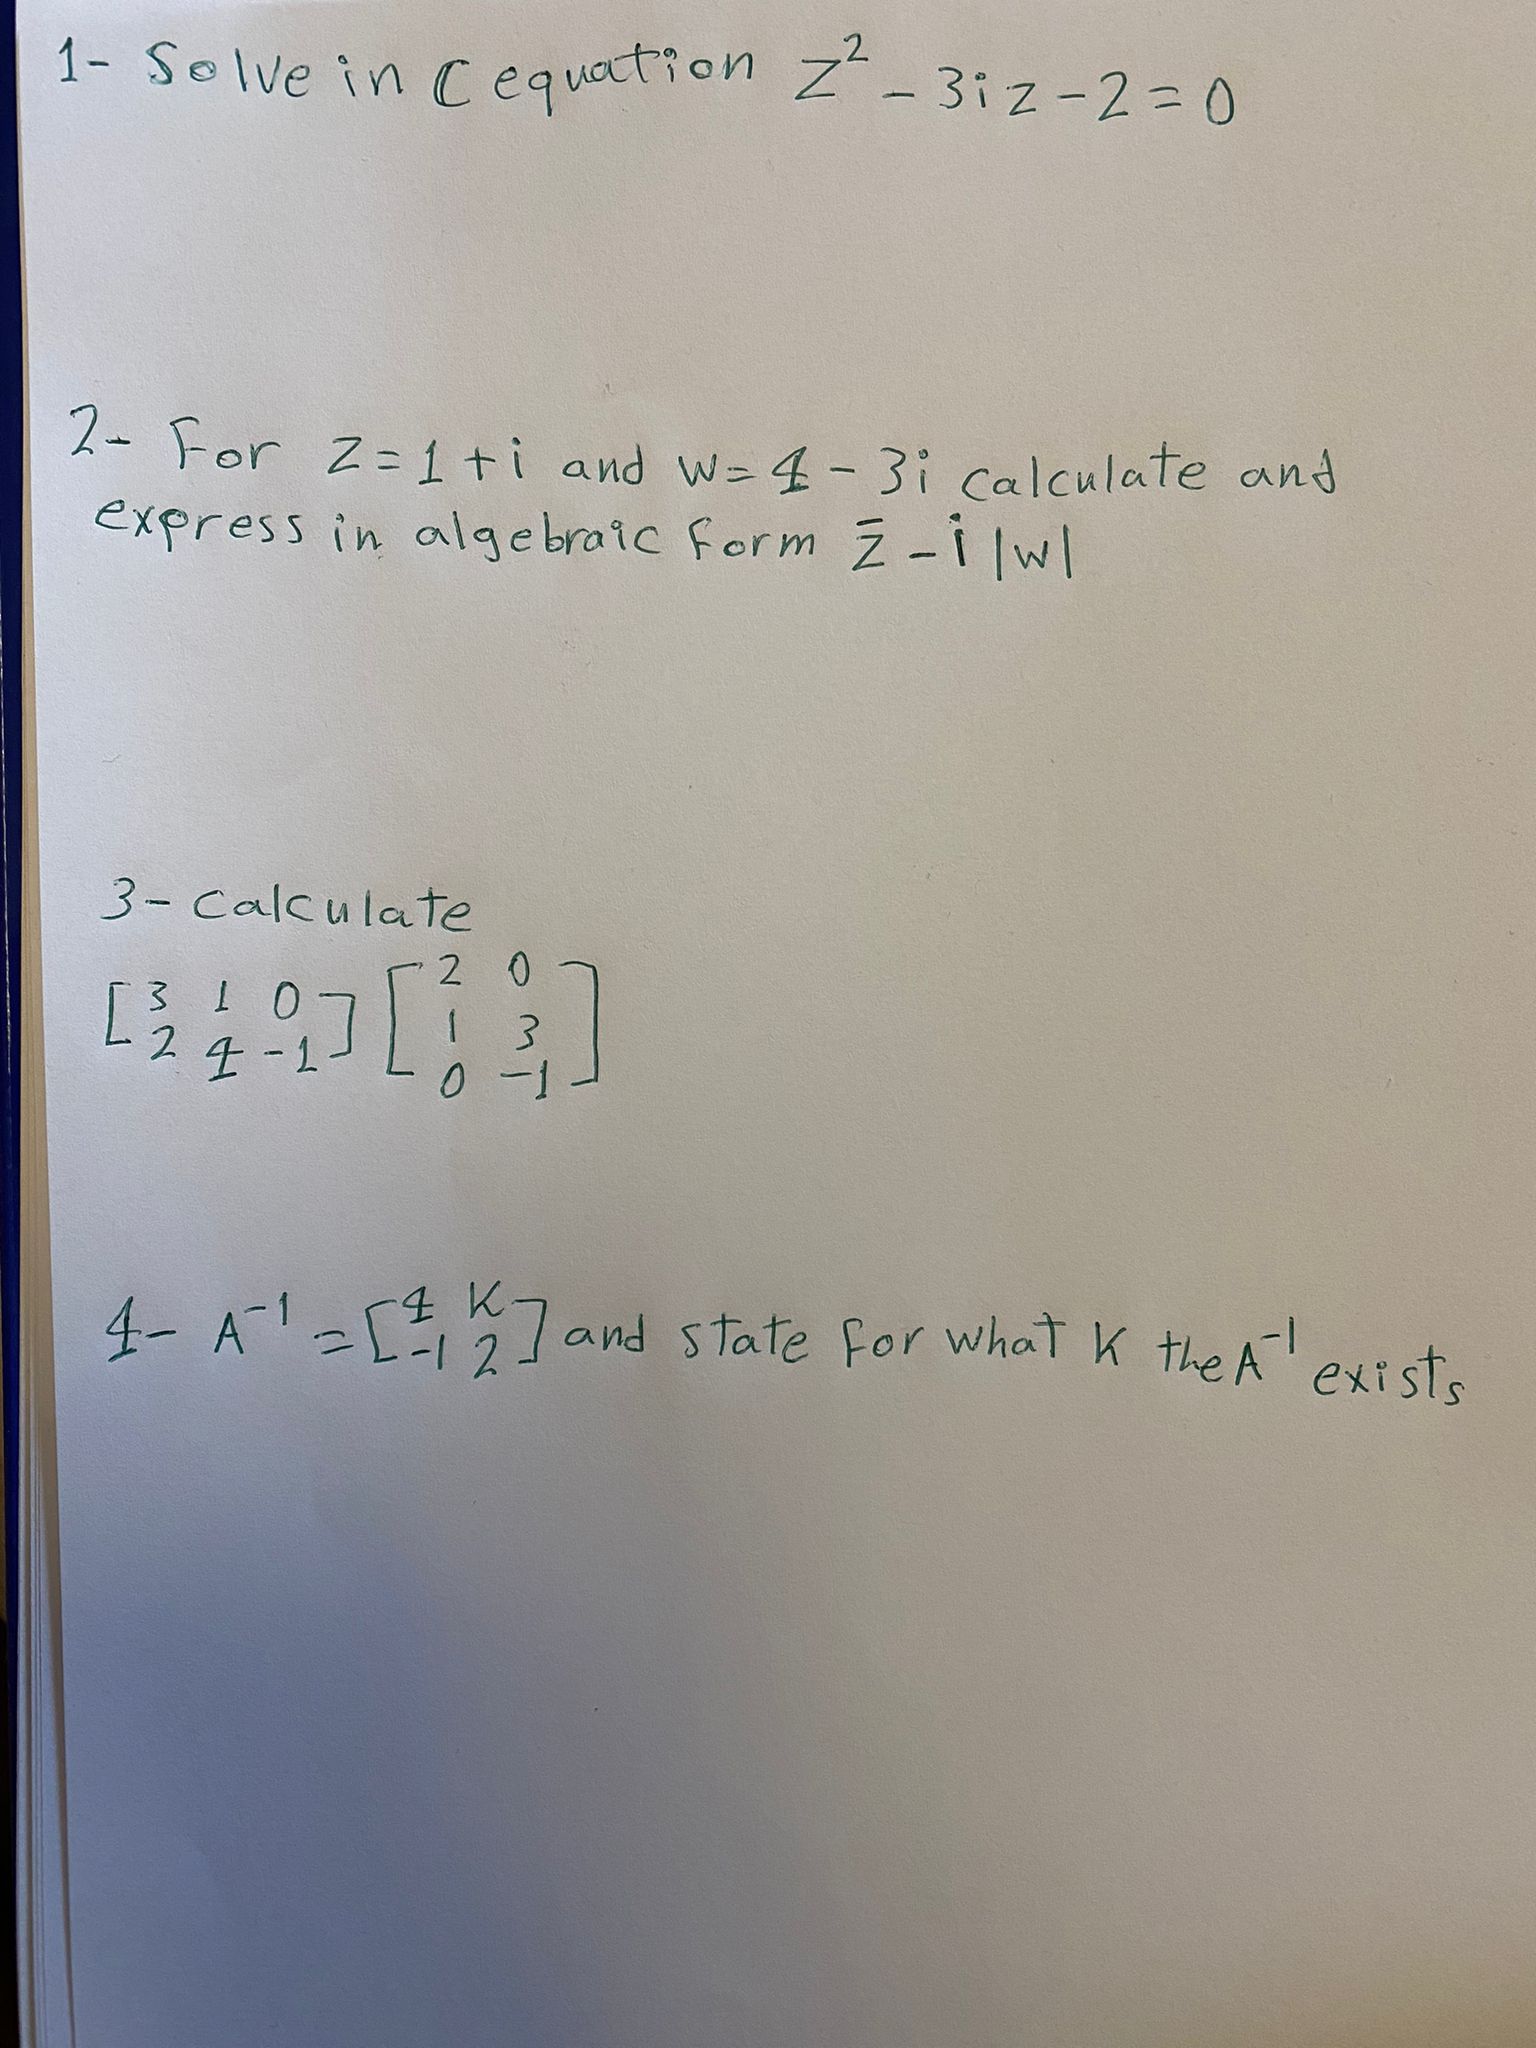 1- Solve in ℂ equation z² - 3iz - 2 = 0
2- For z = 1 + i and w = 4 - 3i calculate and
express in algebraic form z̄ - i |w|
3- calculate
[3 1 0] [2 0]
[2 4 -1] [1 3]
[0 -1]
4- A⁻¹ = [4 K] and state for what K the A⁻¹ exists
[-1 2]